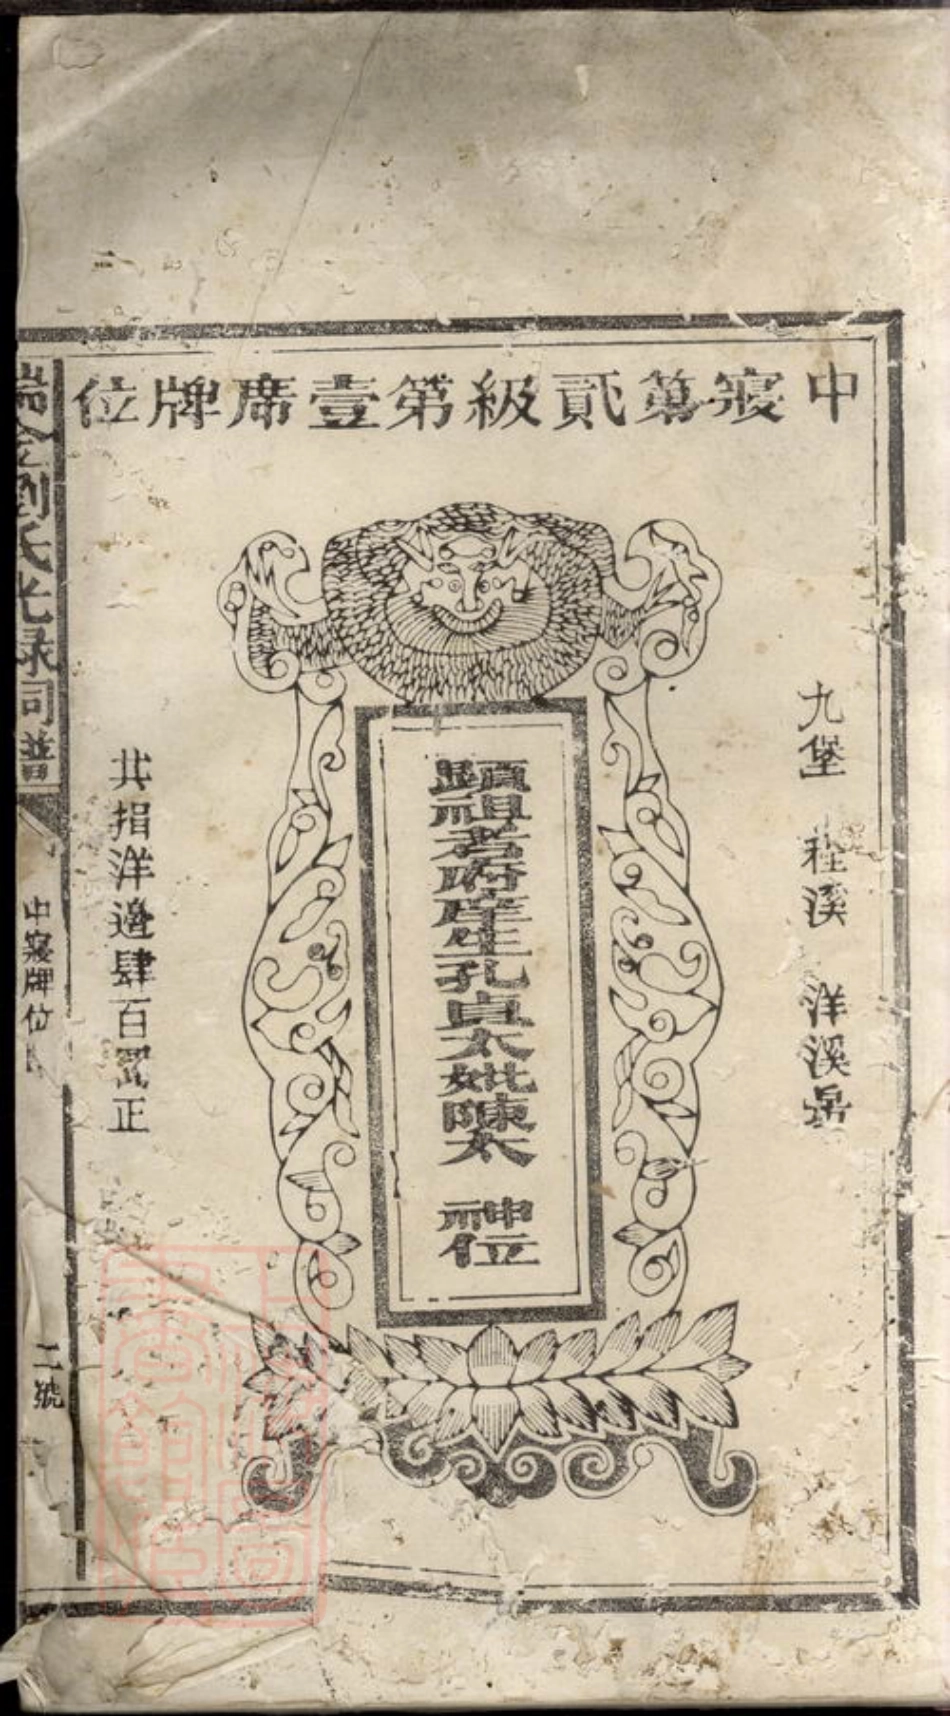 中寢第貳級第壹席牌位
九堡 程溪 洋溪
顯祖考府庠生孔貞太妣陳太 神位
共捐洋邊肆百 正
瑞金劉氏光祿祠譜
中寢牌位
二號